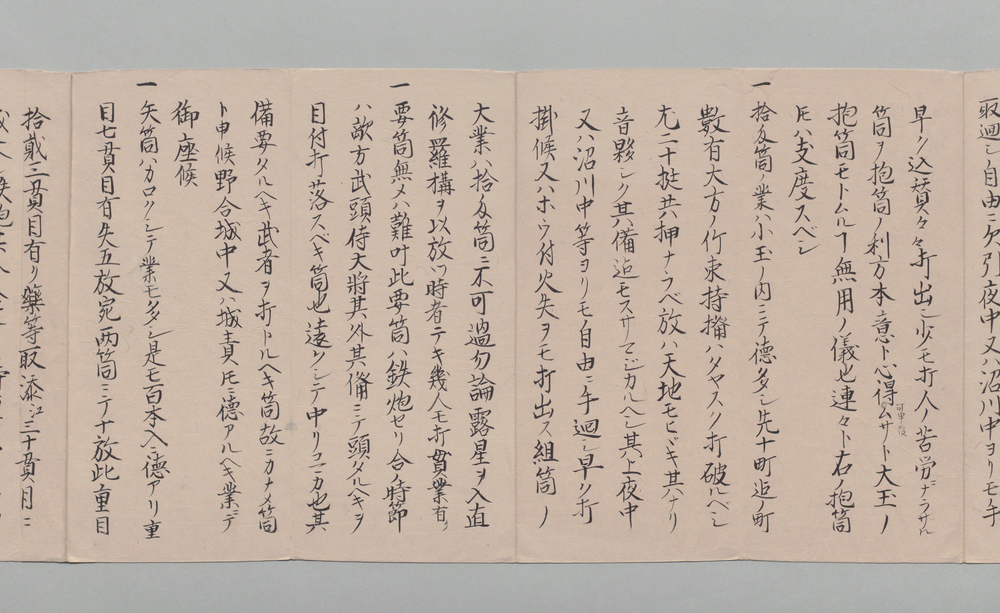 取廻シ自由ニ欠引夜中又ハ沼川中ヨリモ手
早ク込替々々打出シ少モ打人ノ苦労ナラサル
筒ヲ抱筒ノ利方本意ト心得ムサト大玉ノ
可申候
抱筒モトムル事無用ノ儀也連々ト右ノ抱筒
ニハ支度スベシ
一 拾匁筒ノ業ハ小玉ノ内ニテ徳多シ先十町迄ノ町
数有大方ノ竹束持楯ハタヤスク打破ルベシ
尤二十挺共押ナラベ放ハ天地モヒビキ其ナリ
音夥シク其備迄モスサマジカルヘシ其上夜中
又ハ沼川中等ヨリモ自由ニ手廻シ早ク打
掛候又ハホウ付火矢ヲモ打出ス組筒ノ
大業ハ拾匁筒ニ不可過勿論露星ヲ入直
修羅構ヲ以放ツ時者テキ幾人モ打貫業有リ
一 要筒無メハ難叶此要筒ハ鉄炮セリ合ノ時節
ハ敵方武頭侍大将其外其備ニテ頭タルヘキヲ
目付打落スベキ筒也遠シテ中リコマカ也其
備要タルヘキ武者ヲ打トルヘキ筒故ニカナメ筒
ト申候野合城中又ハ城責ニモ徳アルヘキ業ニテ
御座候
一 矢筒ハカロクシテ業モ多シ是モ百本入ニ徳アリ重
目七貫目有矢五放宛両筒ニテナ放此重目
拾貳三貫目有リ薬等取添江三十貫目ニ